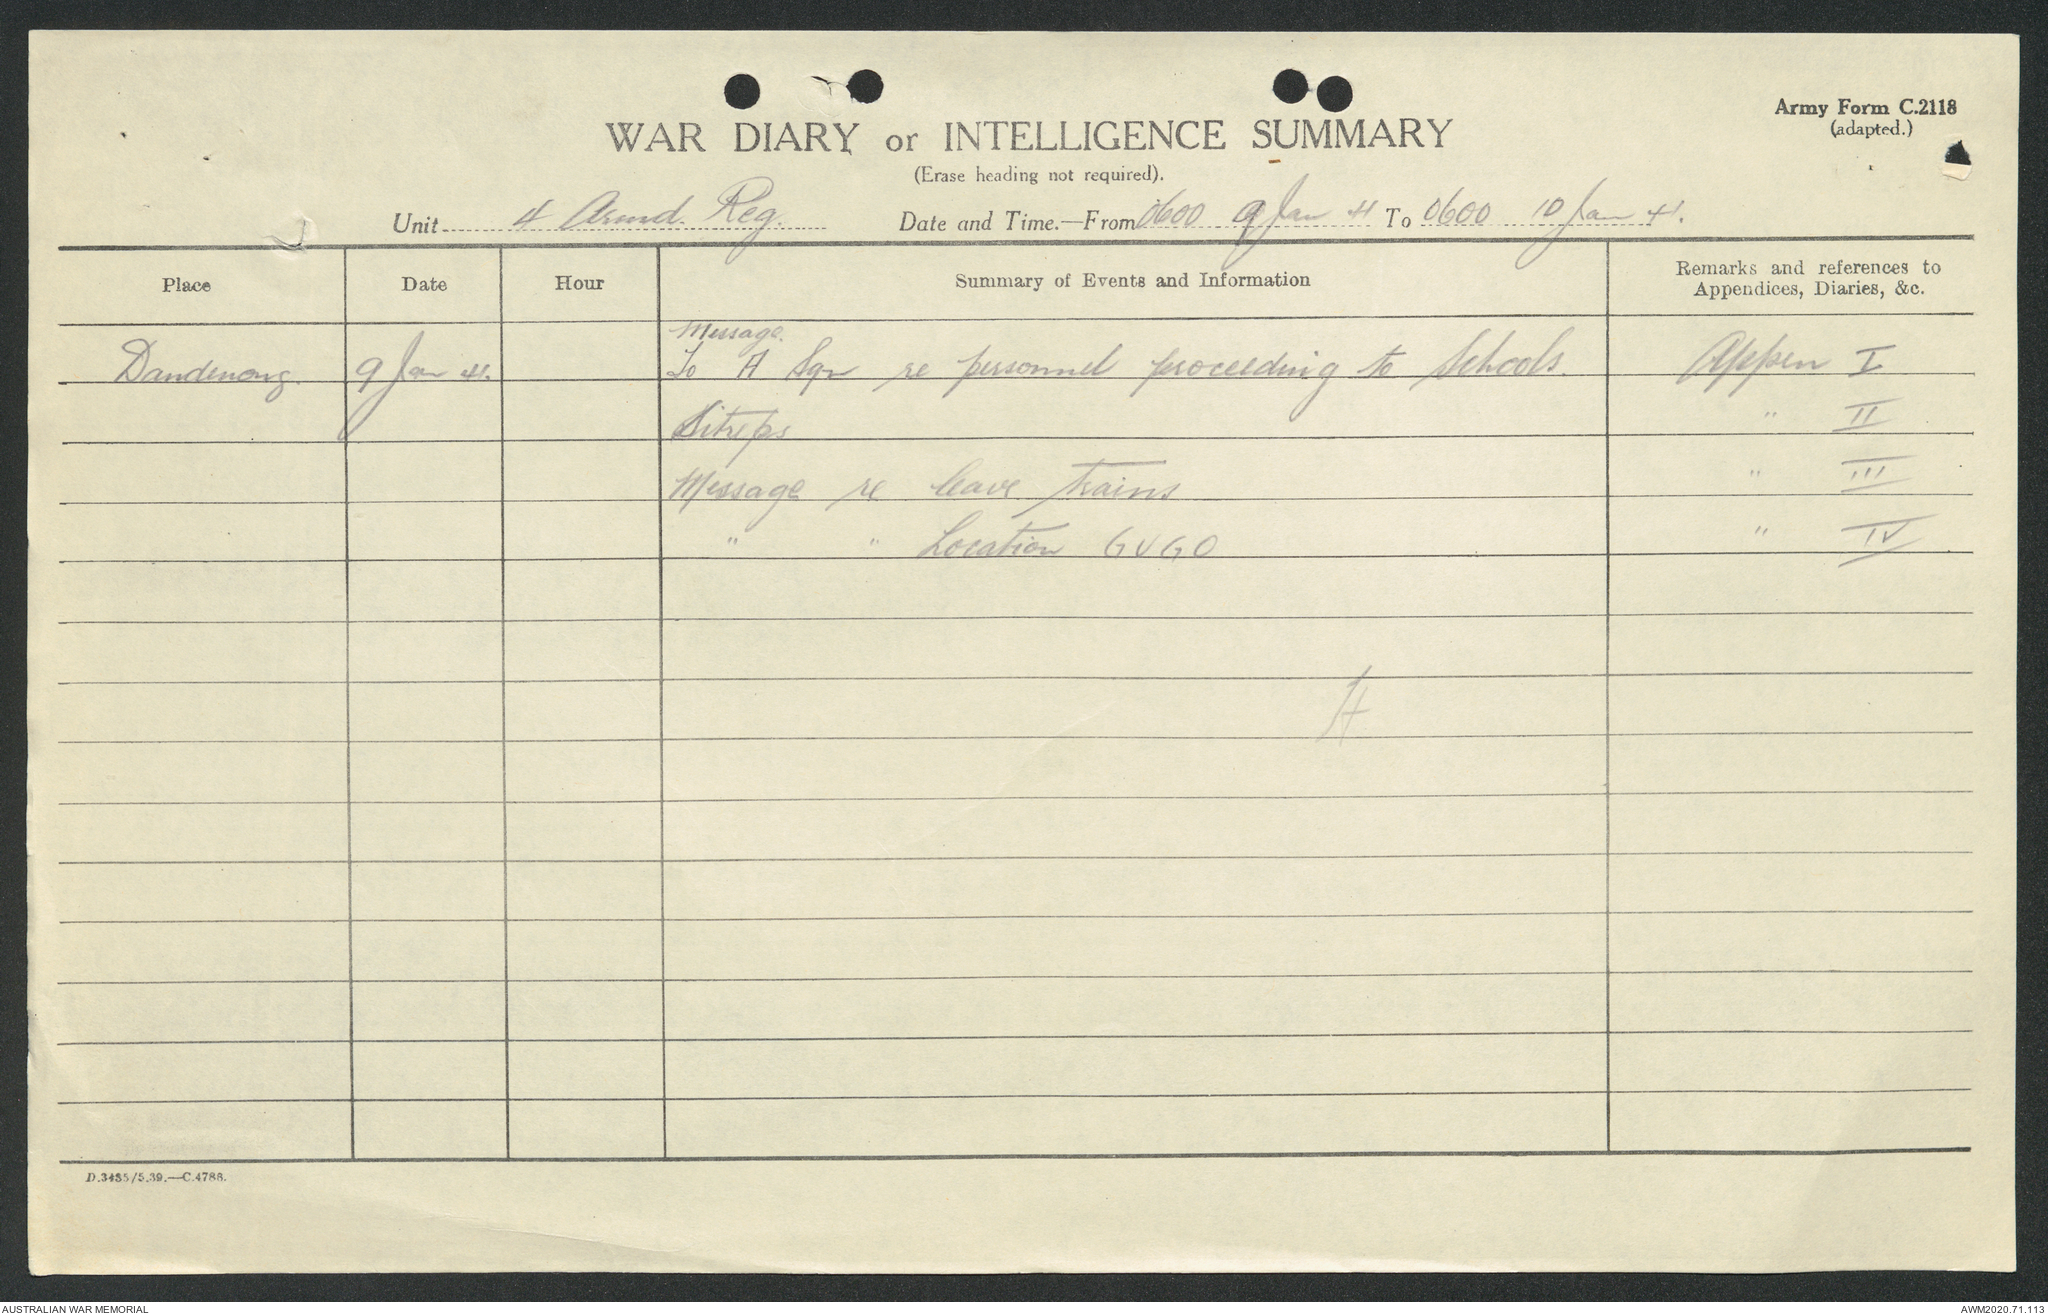 Army Form C.2118
(adapted.)
WAR DIARY or INTELLIGENCE SUMMARY
(Erase heading not required).
Unit 4 Armd. Reg. Date and Time.—From 0600 9 Jan 41 To 0600 10 Jan 41.
Place Date Hour Summary of Events and Information Remarks and references to Appendices, Diaries, &c.
Message.
Dandenong. 9 Jan 41. To A Sqn re personnel proceeding to Schools. Appen I
Sitreps " II
Message re leave trains " III
" " Location GVGO " IV
D.3485/5.39.—C.4788.
AUSTRALIAN WAR MEMORIAL
AWM2020.71.113